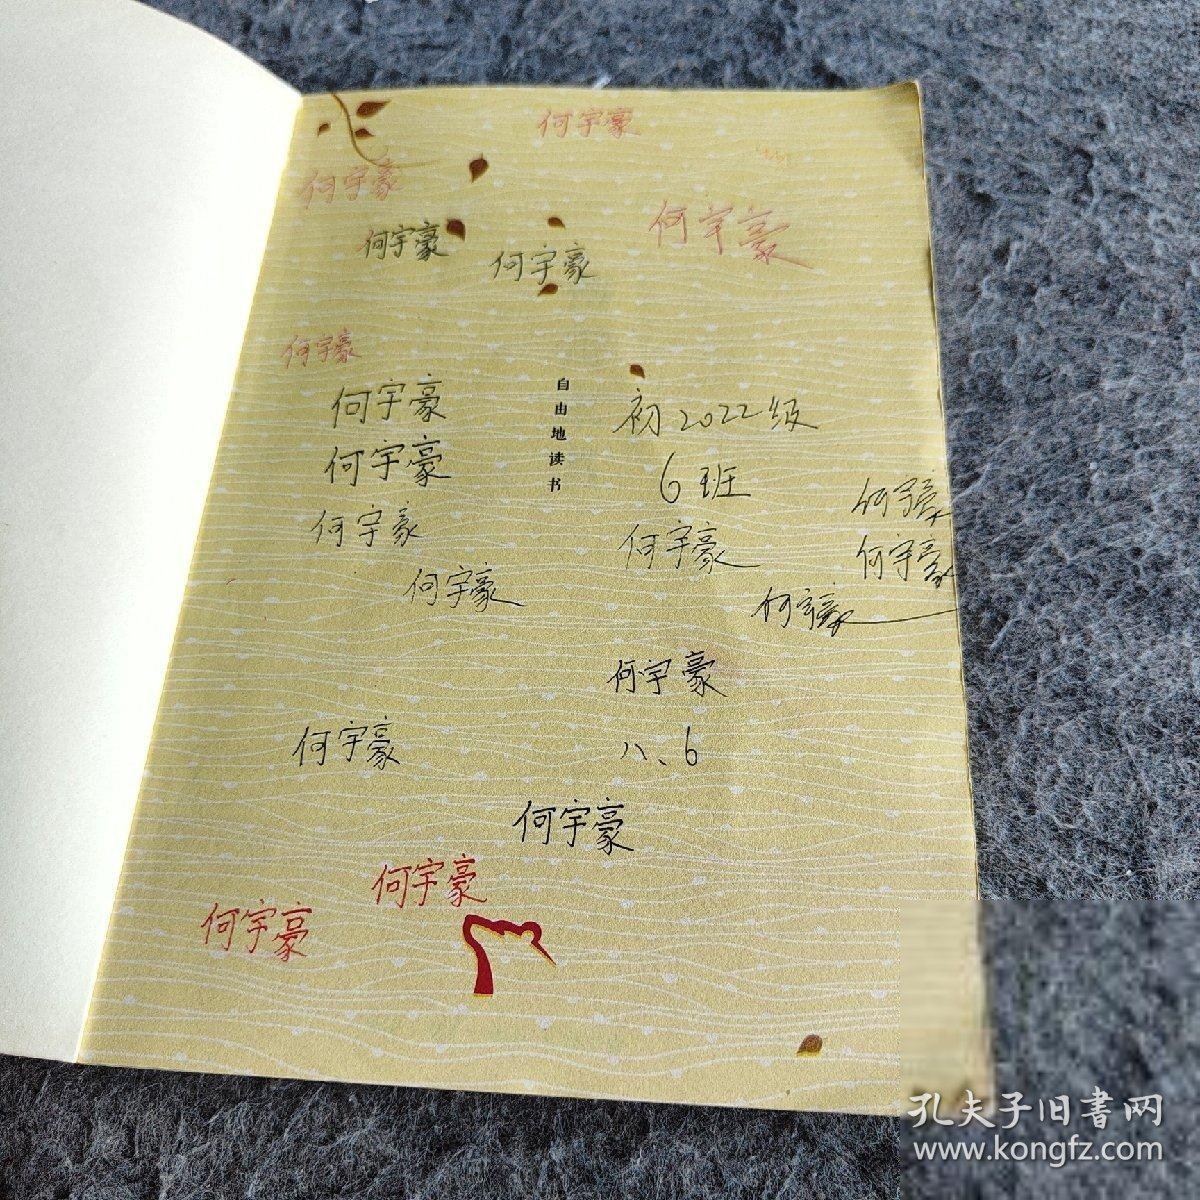 何宇豪
何宇豪
何宇豪
何宇豪
何宇豪
何宇豪
何宇豪
何宇豪
何宇豪
何宇豪
自由地读书
初2022级
6班
何宇豪
何宇豪
何宇豪
何宇豪
何宇豪
八、6
何宇豪
何宇豪
何宇豪
何宇豪
孔夫子旧书网
www.kongfz.com